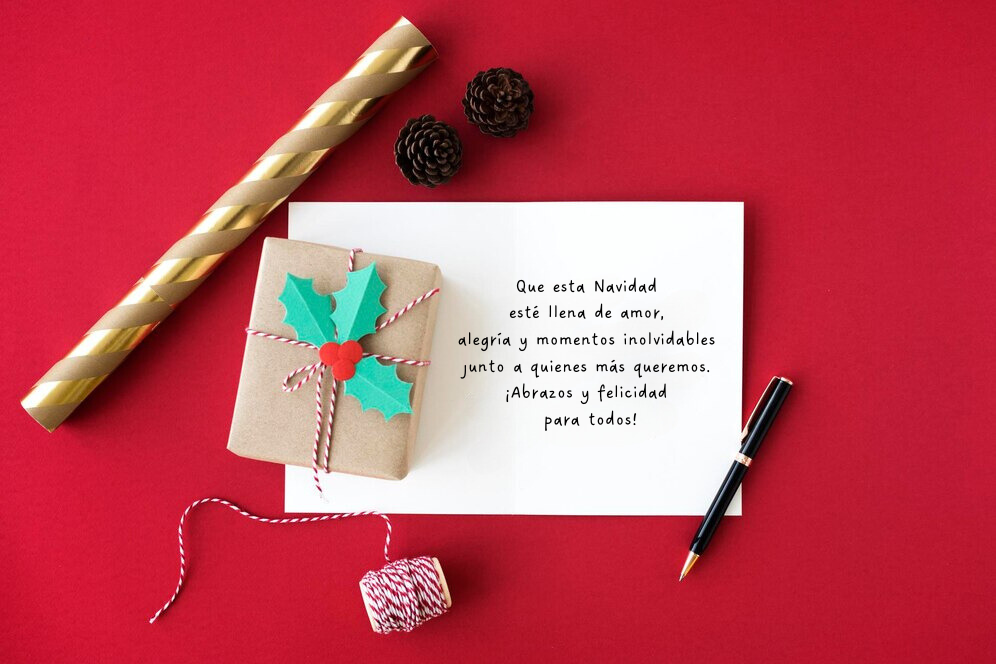 Que esta Navidad
esté llena de amor,
alegría y momentos inolvidables
junto a quienes más queremos.
¡Abrazos y felicidad
para todos!